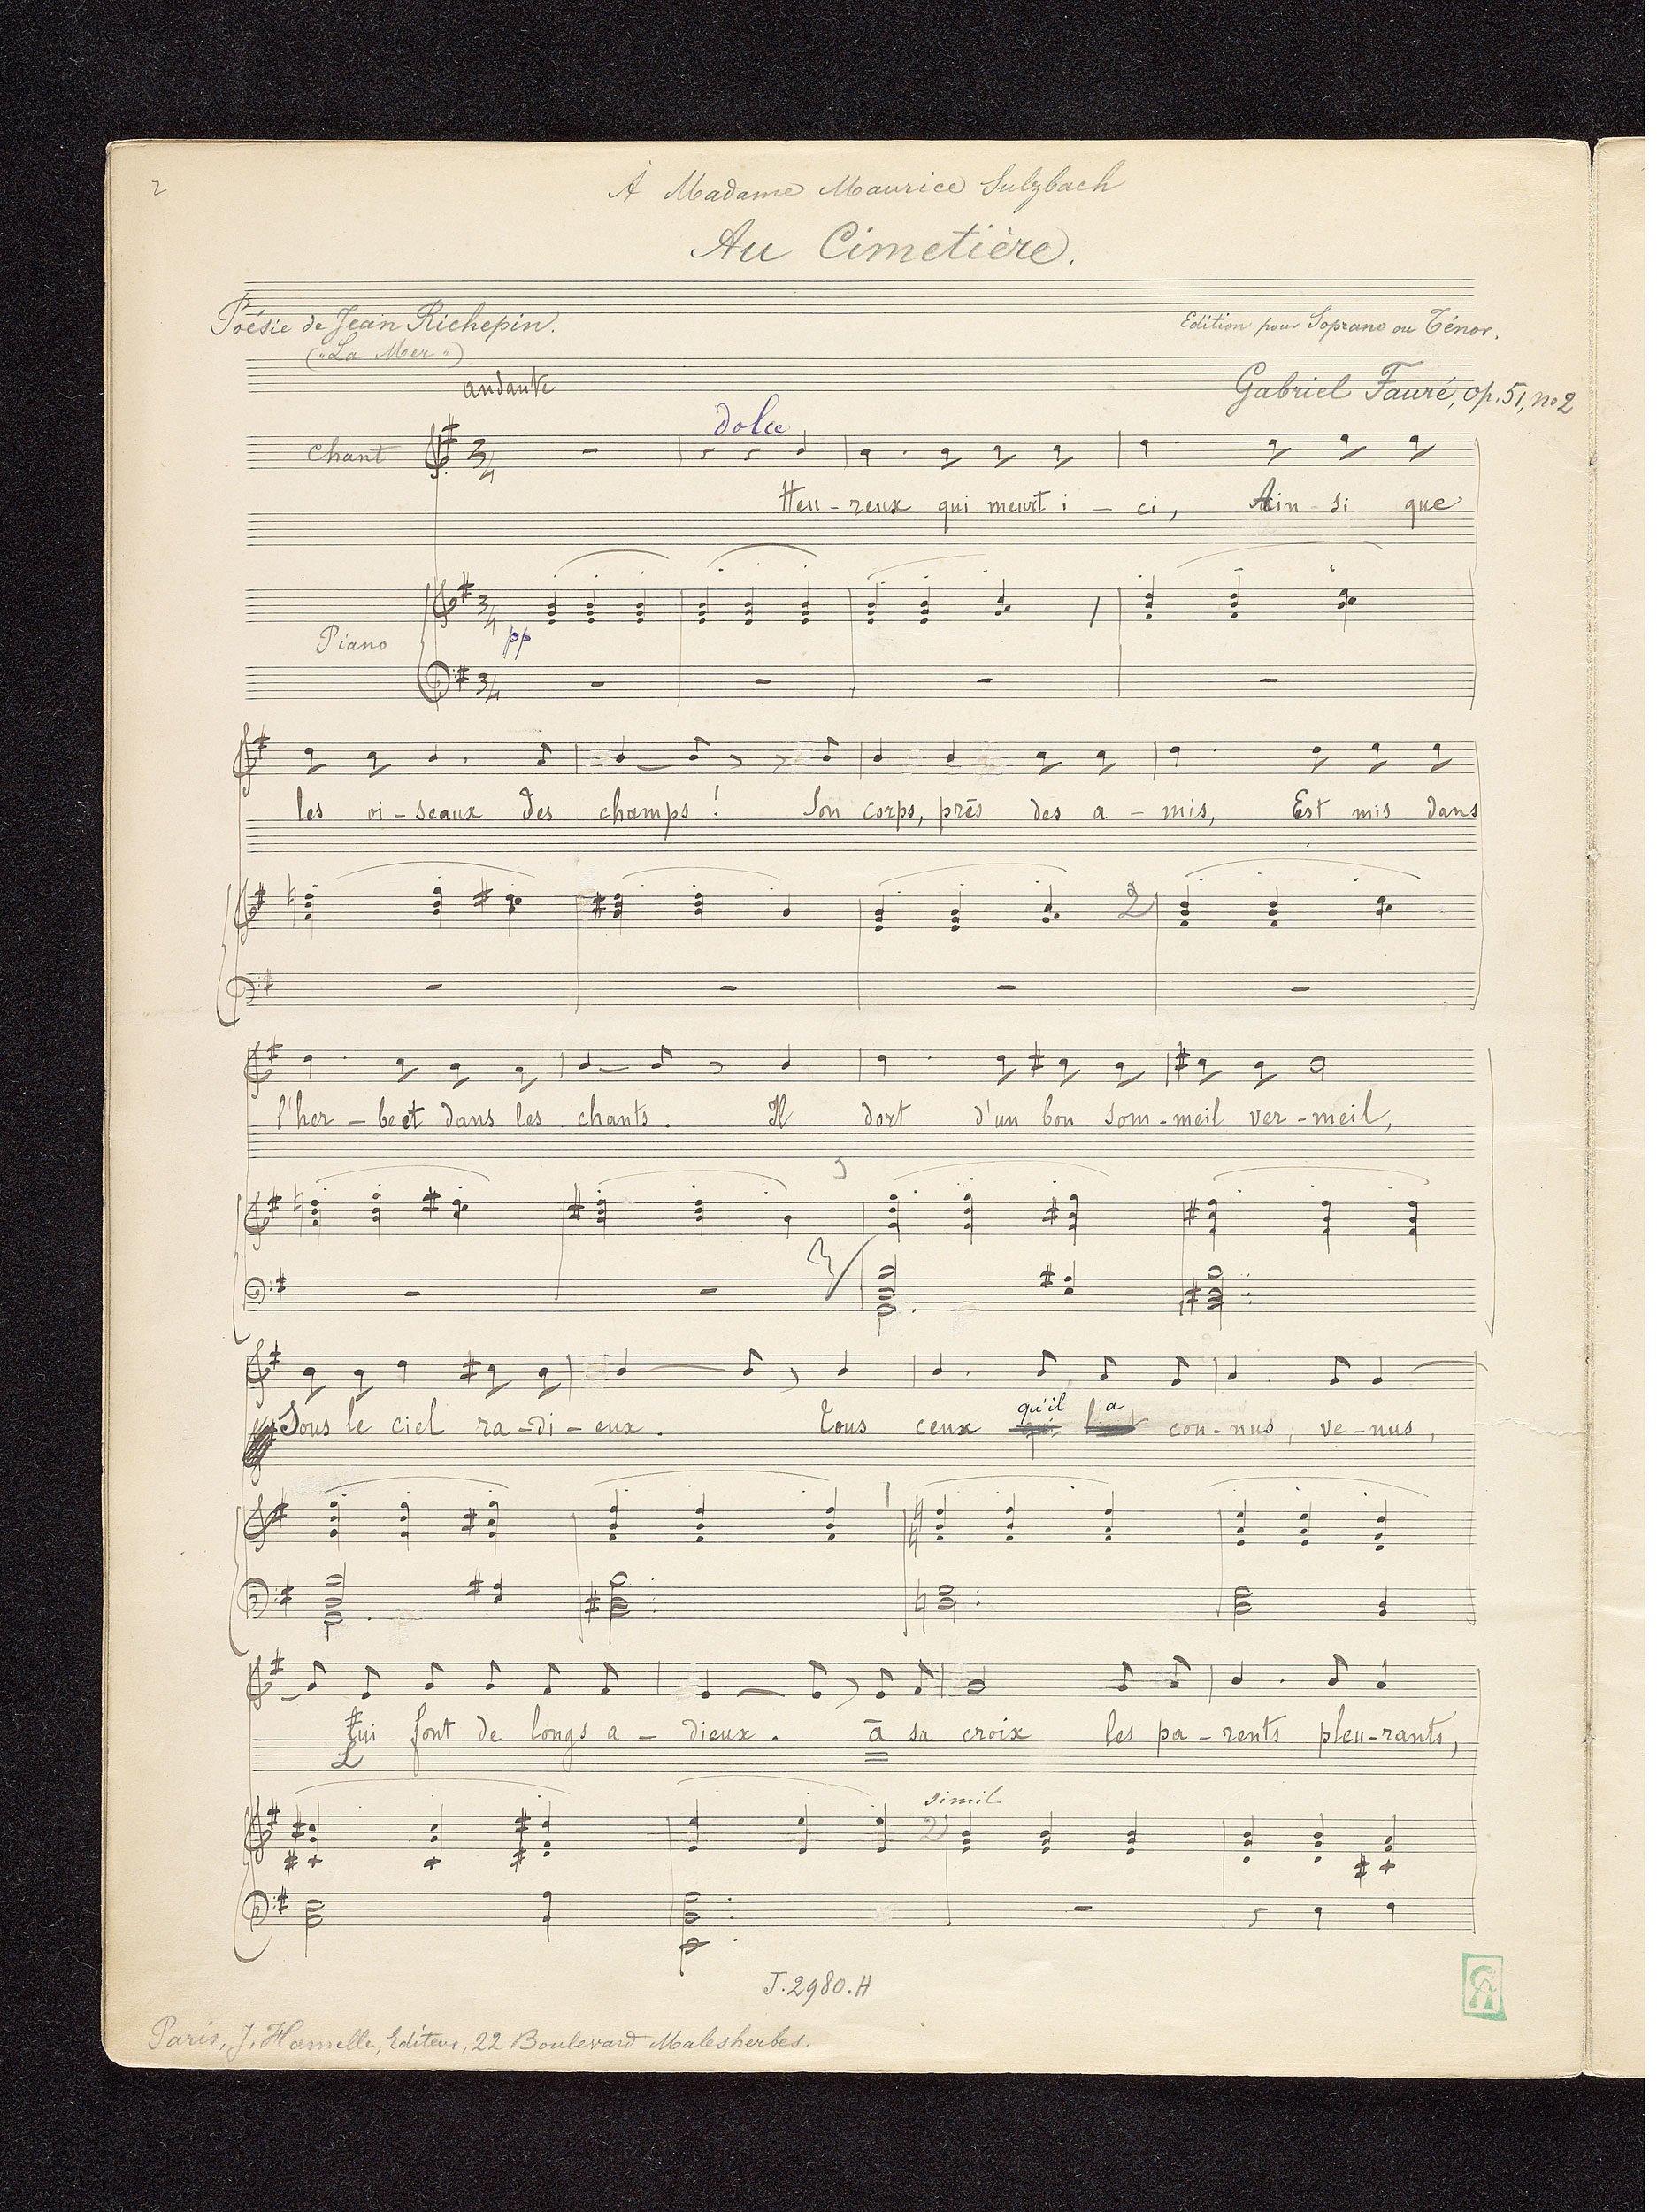 2
À Madame Maurice Sulzbach
Au Cimetière.
Poésie de Jean Richepin.
("La Mer")
Edition pour Soprano ou Ténor.
andante
Gabriel Fauré, op. 51, no 2
dolce
Chant
3/4
Heu - reux qui meurt i - ci, Ain - si que
Piano
3/4
pp
3/4
les oi - seaux des champs ! Son corps, près des a - mis, Est mis dans
2
l'her - be et dans les chants. Il dort d'un bon som - meil ver - meil,
3
qu'il a
Sous le ciel ra - di - eux. Tous ceux qui con - nus, ve - nus,
lui font de longs a - dieux. à sa croix les pa - rents pleu - rants,
L
simil
2
J. 2980. H
Paris, J. Hamelle, Editeur, 22 Boulevard Malesherbes.